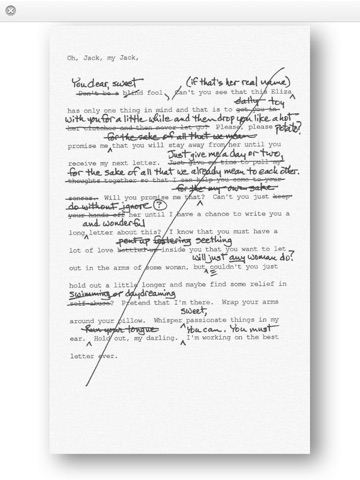 Oh, Jack, my Jack,
You dear, sweet (if that's her real name)
Don't be a blind fool, Can't you see that this Eliza
dally try
has only one thing in mind and that is to get you in
with you for a little while and then drop you like a hot
her clutches and then never let go? Please, please potato?
for the sake of all that we mean
promise me that you will stay away from her until you
Just give me a day or two,
receive my next letter. Just give me time to pull my
for the sake of all that we already mean to each other.
thoughts together so that I can help you come to your
for the my own sake
senses. Will you promise me that? Can't you just keep
do without ignore ?
your hands off her until I have a chance to write you a
and wonderful
long letter about this? I know that you must have a
pent up festering seething
lot of love bottled up inside you that you want to let
will just any woman do?
out in the arms of some woman, but couldn't you just
hold out a little longer and maybe find some relief in
swimming or daydreaming
self-abuse? Pretend that I'm there. Wrap your arms
sweet,
around your pillow. Whisper passionate things in my
Run your tongue You can. You must
ear. Hold out, my darling. I'm working on the best
letter ever.